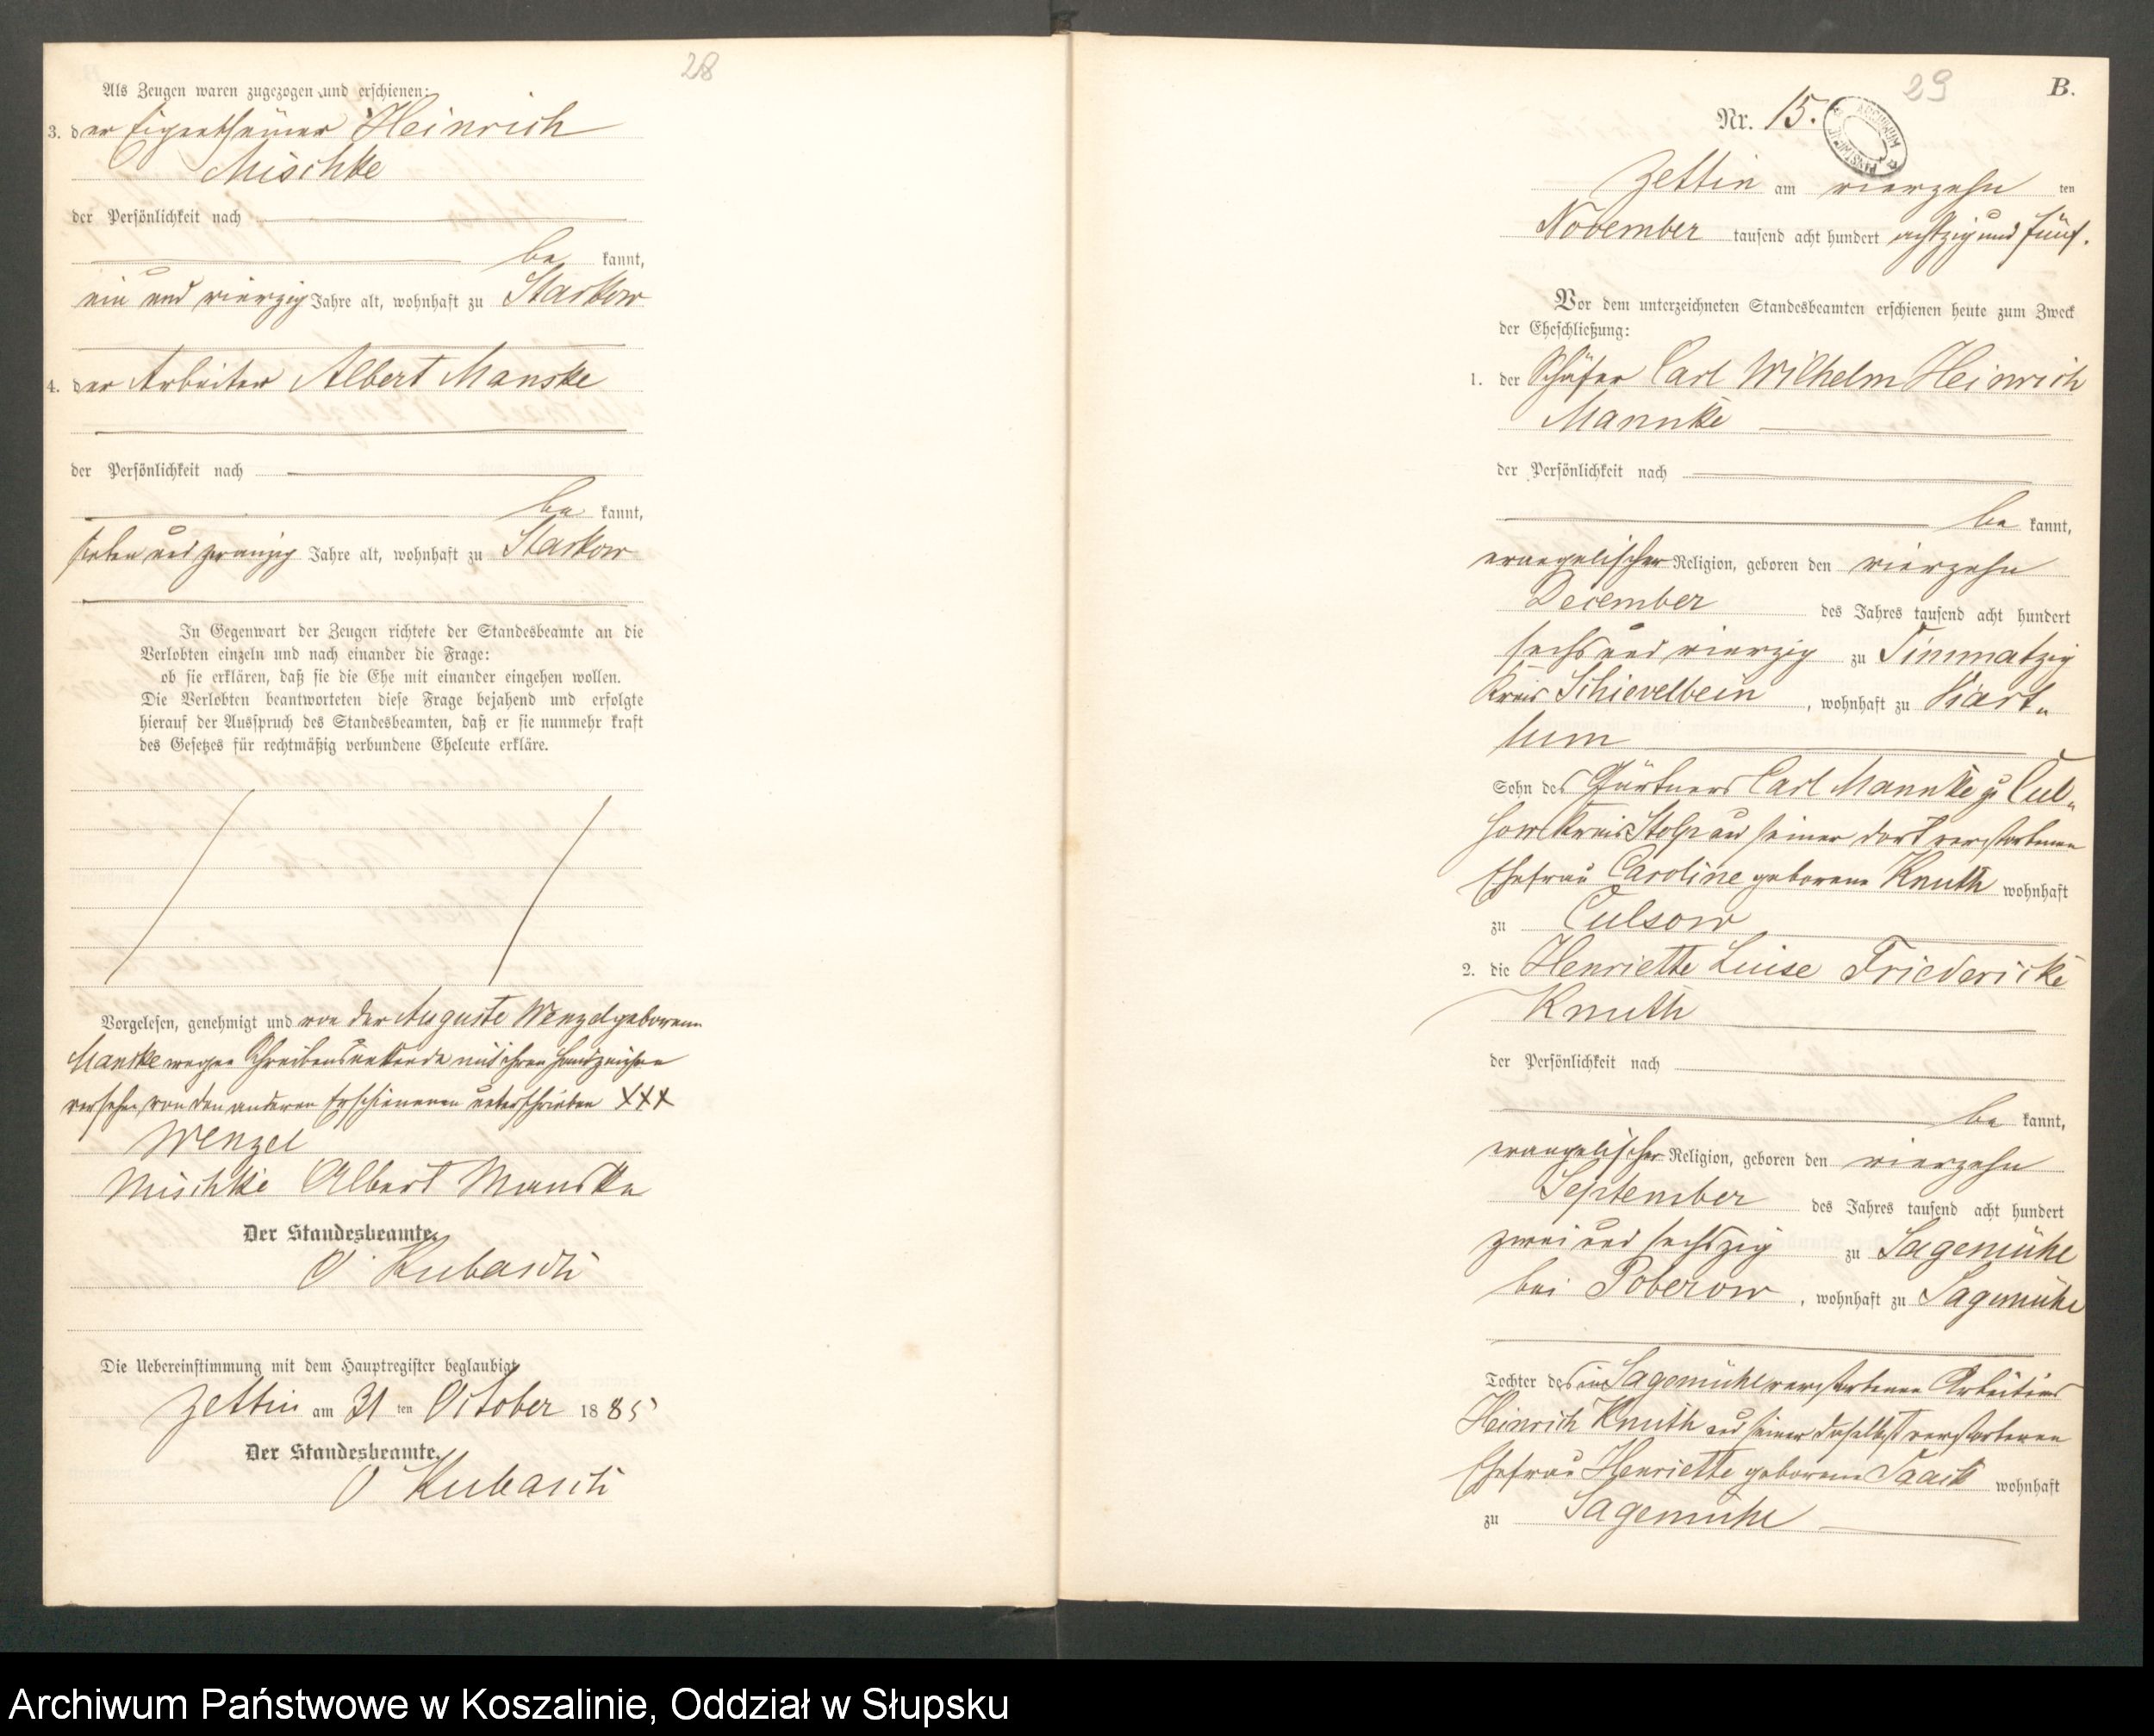 28
Als Zeugen waren zugezogen und erschienen:
3. der Eigenthümer Heinrich
Mischke
der Persönlichkeit nach
be kannt,
ein und vierzig Jahre alt, wohnhaft zu Starkow
4. der Arbeiter Albert Manske
der Persönlichkeit nach
be kannt,
sieben und zwanzig Jahre alt, wohnhaft zu Starkow
In Gegenwart der Zeugen richtete der Standesbeamte an die
Verlobten einzeln und nach einander die Frage:
ob sie erklären, daß sie die Ehe mit einander eingehen wollen.
Die Verlobten beantworteten diese Frage bejahend und erfolgte
hierauf der Ausspruch des Standesbeamten, daß er sie nunmehr kraft
des Gesetzes für rechtmäßig verbundene Eheleute erkläre.
Vorgelesen, genehmigt und von der Auguste Wenzel geborenen
Manske wegen Schreibensunkunde mit ihren Handzeichen
versehen, von den anderen Erschienenen unterschrieben XXX
Wenzel
Mischke Albert Manske
Der Standesbeamte.
Kubasch
Die Uebereinstimmung mit dem Hauptregister beglaubigt
Zettin am 31 ten October 1885
Der Standesbeamte.
Kubasch
29
B.
Nr. 15.
ARCHIWUM PAŃSTWOWE
Zettin am vierzehn ten
November tausend acht hundert achtzig und fünf.
Vor dem unterzeichneten Standesbeamten erschienen heute zum Zweck
der Eheschließung:
1. der Schäfer Carl Wilhelm Heinrich
Mannke
der Persönlichkeit nach
be kannt,
evangelischer Religion, geboren den vierzehn
December des Jahres tausend acht hundert
sechs und vierzig zu Simmatzig
Kreis Schievelbein, wohnhaft zu
Sohn des Gärtners Carl Mannke zu Cul-
sow Kreis Stolp und seiner dort verstorbenen
Ehefrau Caroline geborene Knuth wohnhaft
zu Culsow
2. die Henriette Luise Friedericke
Knuth
der Persönlichkeit nach
be kannt,
evangelischer Religion, geboren den vierzehn
September des Jahres tausend acht hundert
zwei und sechszig zu Sagemühe
bei Poberow, wohnhaft zu Sagemühe
Tochter des in Sagemühe verstorbenen Arbeiters
Heinrich Knuth und seiner daselbst verstorbenen
Ehefrau Henriette geborene wohnhaft
zu Sagemühe
Archiwum Państwowe w Koszalinie, Oddział w Słupsku